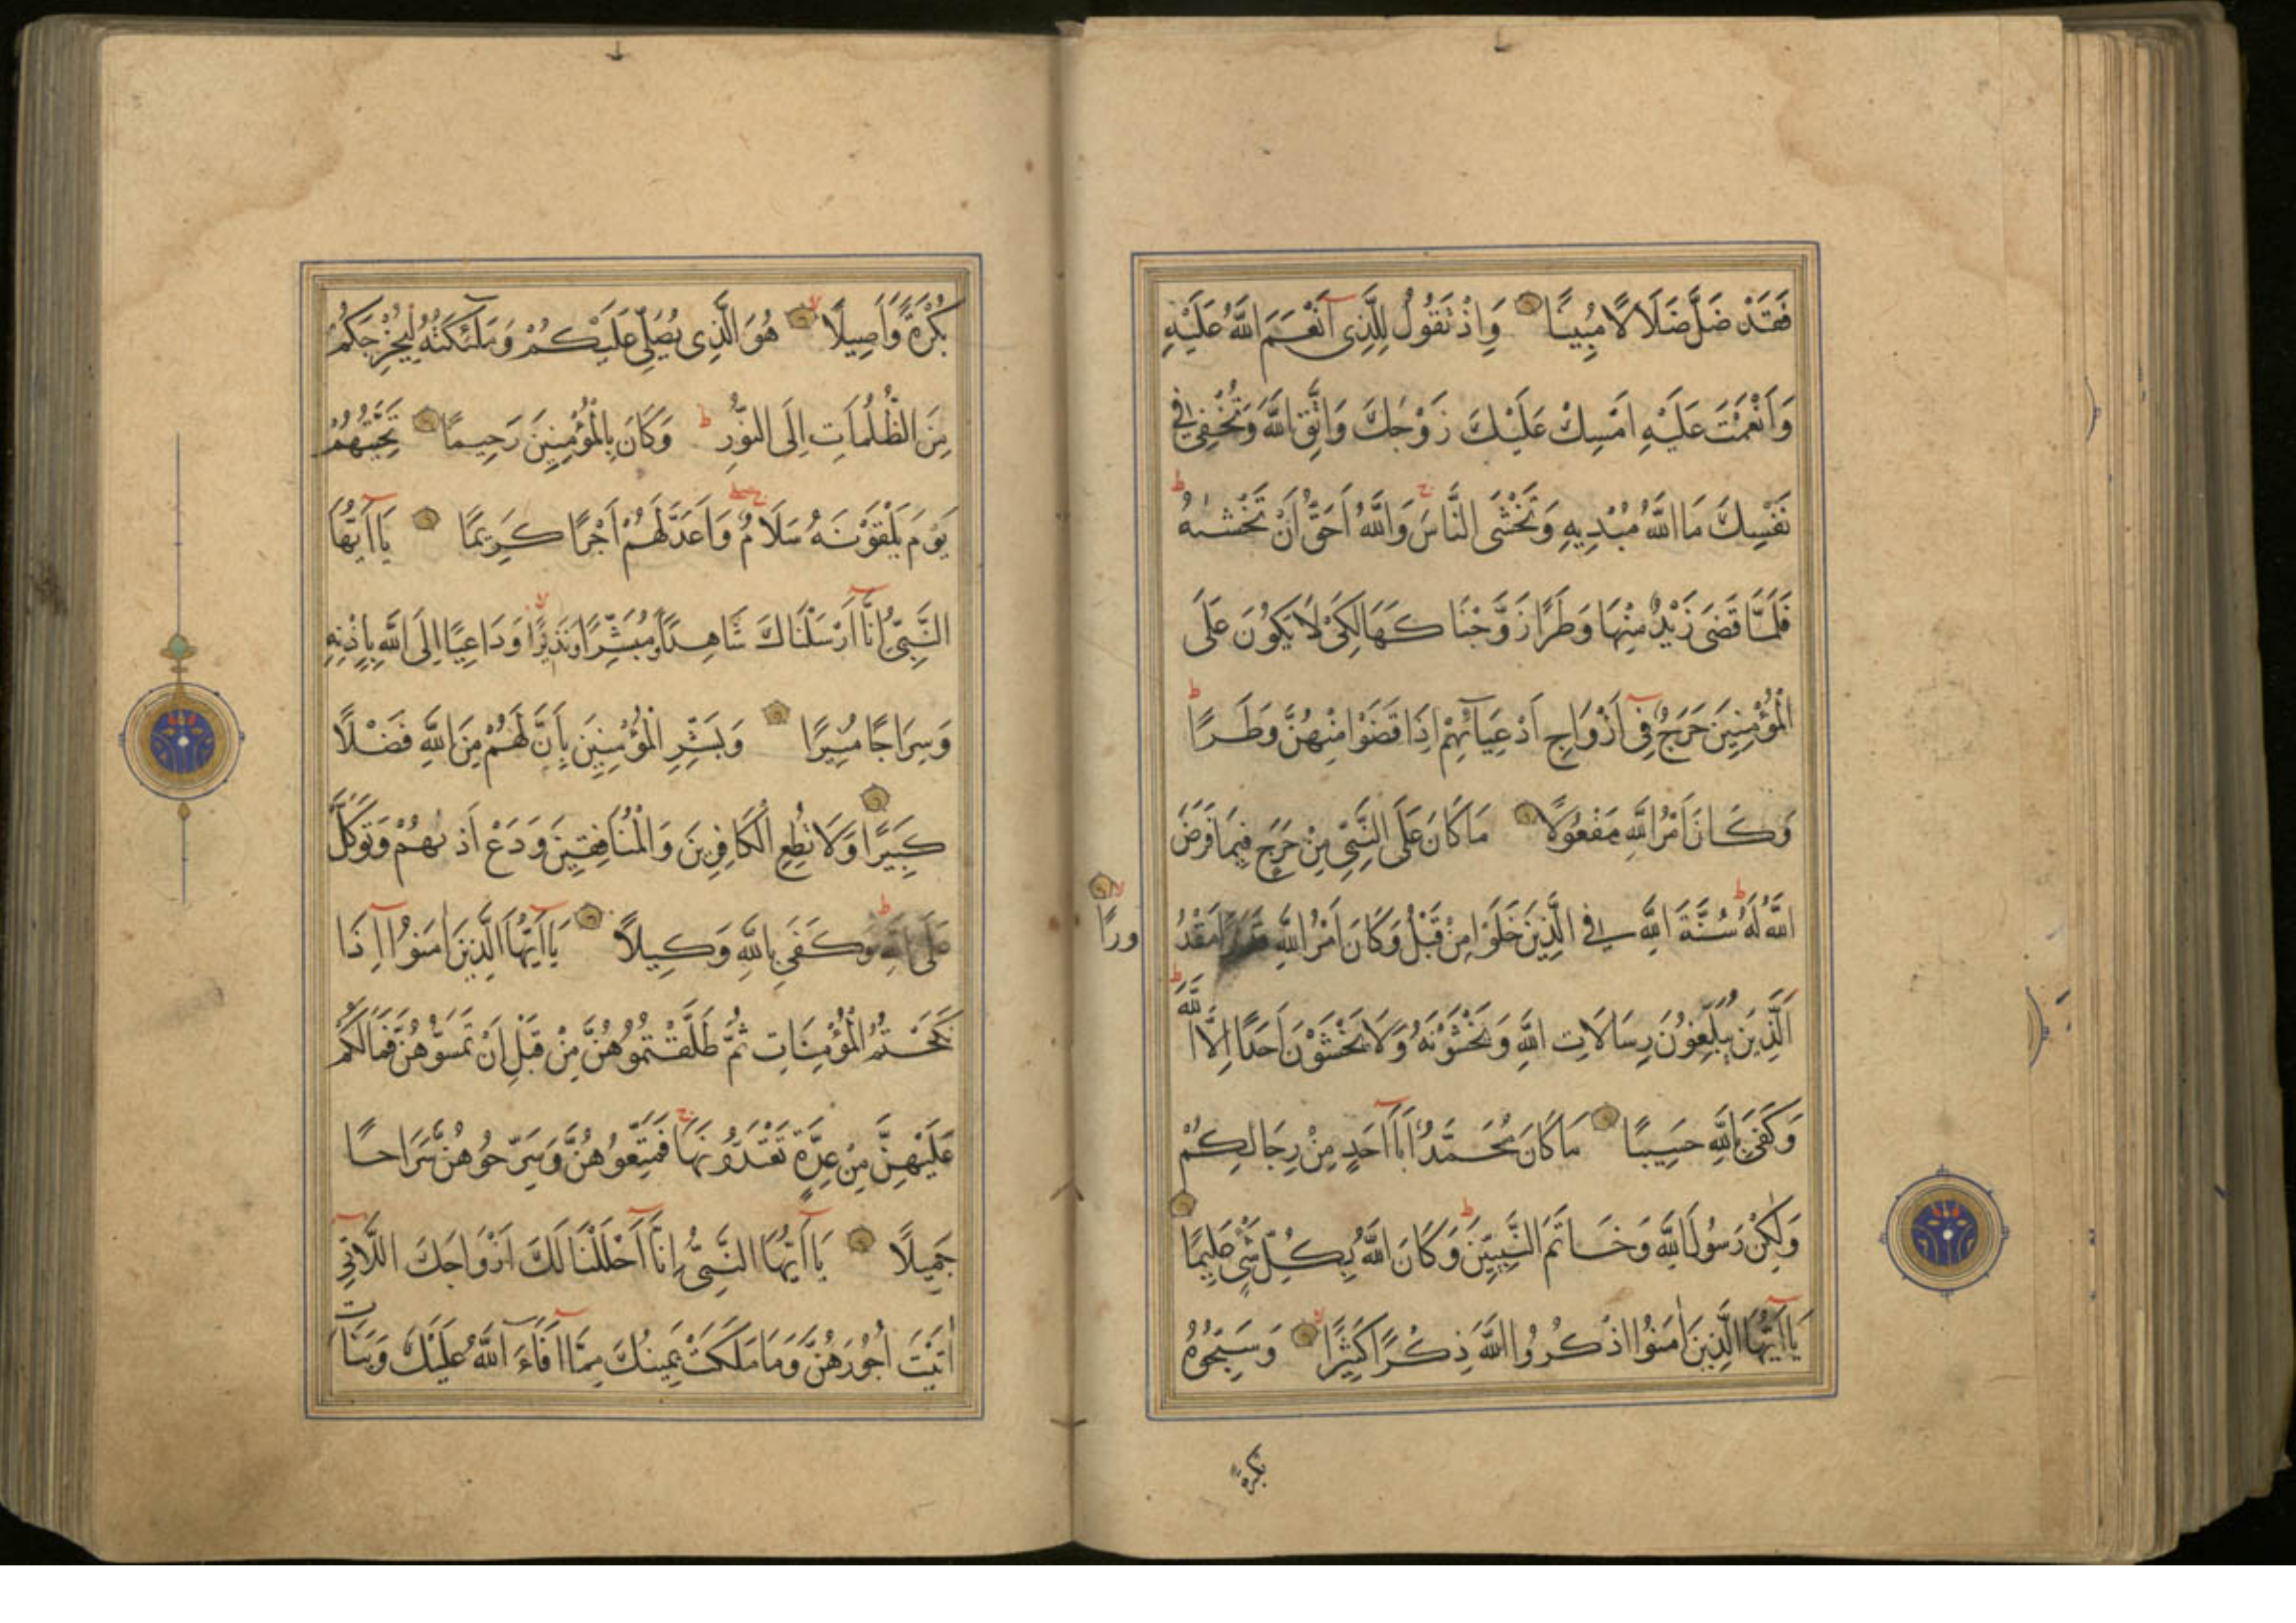 فَقَدْ ضَلَّ ضَلَالًا مُبِينًا وَاِذْ تَقُولُ لِلَّذِى اَنْعَمَ اللّٰهُ عَلَيْهِ
وَاَنْعَمْتَ عَلَيْهِ اَمْسِكْ عَلَيْكَ زَوْجَكَ وَاتَّقِ اللّٰهَ وَتُخْفِى فِى
نَفْسِكَ مَا اللّٰهُ مُبْدِيهِ وَتَخْشَى النَّاسَ وَاللّٰهُ اَحَقُّ اَنْ تَخْشٰيهُ
فَلَمَّا قَضَى زَيْدٌ مِنْهَا وَطَرًا زَوَّجْنَا كَهَا لِكَىْ لَا يَكُونَ عَلَى
الْمُؤْمِنِينَ حَرَجٌ فِى اَزْوَاجِ اَدْعِيَآئِهِمْ اِذَا قَضَوْا مِنْهُنَّ وَطَرًا
وَكَانَ اَمْرُ اللّٰهِ مَفْعُولًا مَا كَانَ عَلَى النَّبِىِّ مِنْ حَرَجٍ فِيمَا فَرَضَ
اللّٰهُ لَهُ سُنَّةَ اللّٰهِ فِى الَّذِينَ خَلَوْا مِنْ قَبْلُ وَكَانَ اَمْرُ اللّٰهِ قَدَرًا مَقْدُ
ورًا
اَلَّذِينَ يُبَلِّغُونَ رِسَالَاتِ اللّٰهِ وَيَخْشَوْنَهُ وَلَا يَخْشَوْنَ اَحَدًا اِلَّا اللّٰهَ
وَكَفَى بِاللّٰهِ حَسِيبًا مَا كَانَ مُحَمَّدٌ اَبَا اَحَدٍ مِنْ رِجَالِكُمْ
وَلٰكِنْ رَسُولَ اللّٰهِ وَخَاتَمَ النَّبِيِّينَ وَكَانَ اللّٰهُ بِكُلِّ شَىْءٍ عَلِيمًا
يَا اَيُّهَا الَّذِينَ اٰمَنُوا اذْكُرُوا اللّٰهَ ذِكْرًا كَثِيرًا وَسَبِّحُوهُ
بكرة
بُكْرَةً وَاَصِيلًا هُوَ الَّذِى يُصَلِّى عَلَيْكُمْ وَمَلٰٓئِكَتُهُ لِيُخْرِجَكُمْ
مِنَ الظُّلُمَاتِ اِلَى النُّورِ وَكَانَ بِالْمُؤْمِنِينَ رَحِيمًا تَحِيَّتُهُمْ
يَوْمَ يَلْقَوْنَهُ سَلَامٌ وَاَعَدَّ لَهُمْ اَجْرًا كَرِيمًا يَا اَيُّهَا
النَّبِىُّ اِنَّا اَرْسَلْنَاكَ شَاهِدًا وَمُبَشِّرًا وَنَذِيرًا وَدَاعِيًا اِلَى اللّٰهِ بِاِذْنِهِ
وَسِرَاجًا مُنِيرًا وَبَشِّرِ الْمُؤْمِنِينَ بِاَنَّ لَهُمْ مِنَ اللّٰهِ فَضْلًا
كَبِيرًا وَلَا تُطِعِ الْكَافِرِينَ وَالْمُنَافِقِينَ وَدَعْ اَذٰيهُمْ وَتَوَكَّلْ
عَلَى اللّٰهِ وَكَفَى بِاللّٰهِ وَكِيلًا يَا اَيُّهَا الَّذِينَ اٰمَنُوا اِذَا
نَكَحْتُمُ الْمُؤْمِنَاتِ ثُمَّ طَلَّقْتُمُوهُنَّ مِنْ قَبْلِ اَنْ تَمَسُّوهُنَّ فَمَا لَكُمْ
عَلَيْهِنَّ مِنْ عِدَّةٍ تَعْتَدُّونَهَا فَمَتِّعُوهُنَّ وَسَرِّحُوهُنَّ سَرَاحًا
جَمِيلًا يَا اَيُّهَا النَّبِىُّ اِنَّا اَحْلَلْنَا لَكَ اَزْوَاجَكَ اللَّاتِى
اٰتَيْتَ اُجُورَهُنَّ وَمَا مَلَكَتْ يَمِينُكَ مِمَّا اَفَاءَ اللّٰهُ عَلَيْكَ وَبَنَاتِ